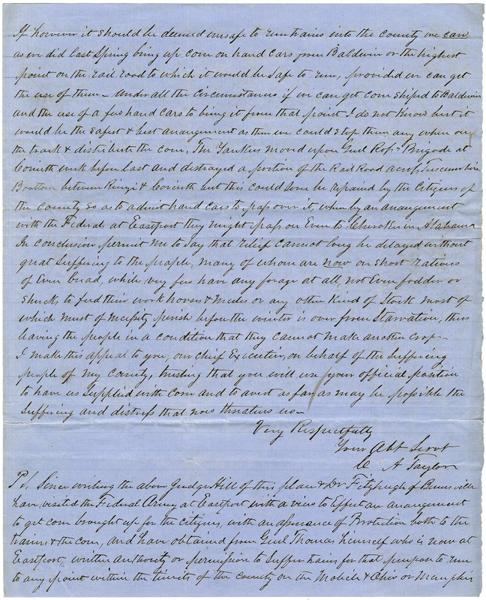 If however it should be deemed unsafe to run trains into the County we can
as we did last Spring bring up corn on hand cars from Baldwin or the highest
point on the Rail Road to which it would be safe to run, provided we can get
the use of them – Under all the Circumstances if we can get corn shiped to Baldwin
and the use of a few hand Cars to bring it from that point I do not know but it
would be the safest & best arrangement as then we could stop them any where on
the track & distribute the corn. The Yankees moved upon Genl Brigade at
Corinth week before last and destroyed a portion of the Rail Road across Tuscumbia
Bottom between Rienzi & Corinth but this could soon be repaired by the Citizens of
the County so as to admit hand Cars to pass over it when by an arrangement
with the Federals at Eastport they might pass on Even to Cherokee in Alabama
In conclusion permit me to say that relief cannot long be delayed without
great suffering to the people, many of whom are now on short rations
of Even bread, while very few have any forage at all not Even fodder or
shucks to feed their work horses & mules or any other kind of Stock most of
which must of necessity perish before the winter is over from Starvation, thus
leaving the people in a condition that they cannot make another crop –
I make this appeal to you, our Chief Executive, on behalf of the suffering
people of my county, trusting that you will use your official position
to have us supplied with Corn and to avert as far as may be possible the
suffering and distress that now threatens us –
Very Respectfully
Your Obt Servt
C A Taylor
P S. Since writing the above Judge Hill of this place & Dr Fitzhugh of Burnsville
have visited the Federal Army at Eastport with a view to Effect an arrangement
to get corn brought up for the citizens, with an assurance of Protection both to the
trains & the corn, and have obtained from Genl Thomas himself who is now at
Eastport, written authority or permission to suffer trains for that purpose to run
to any point within the limits of the county on the Mobile & Ohio or Memphis